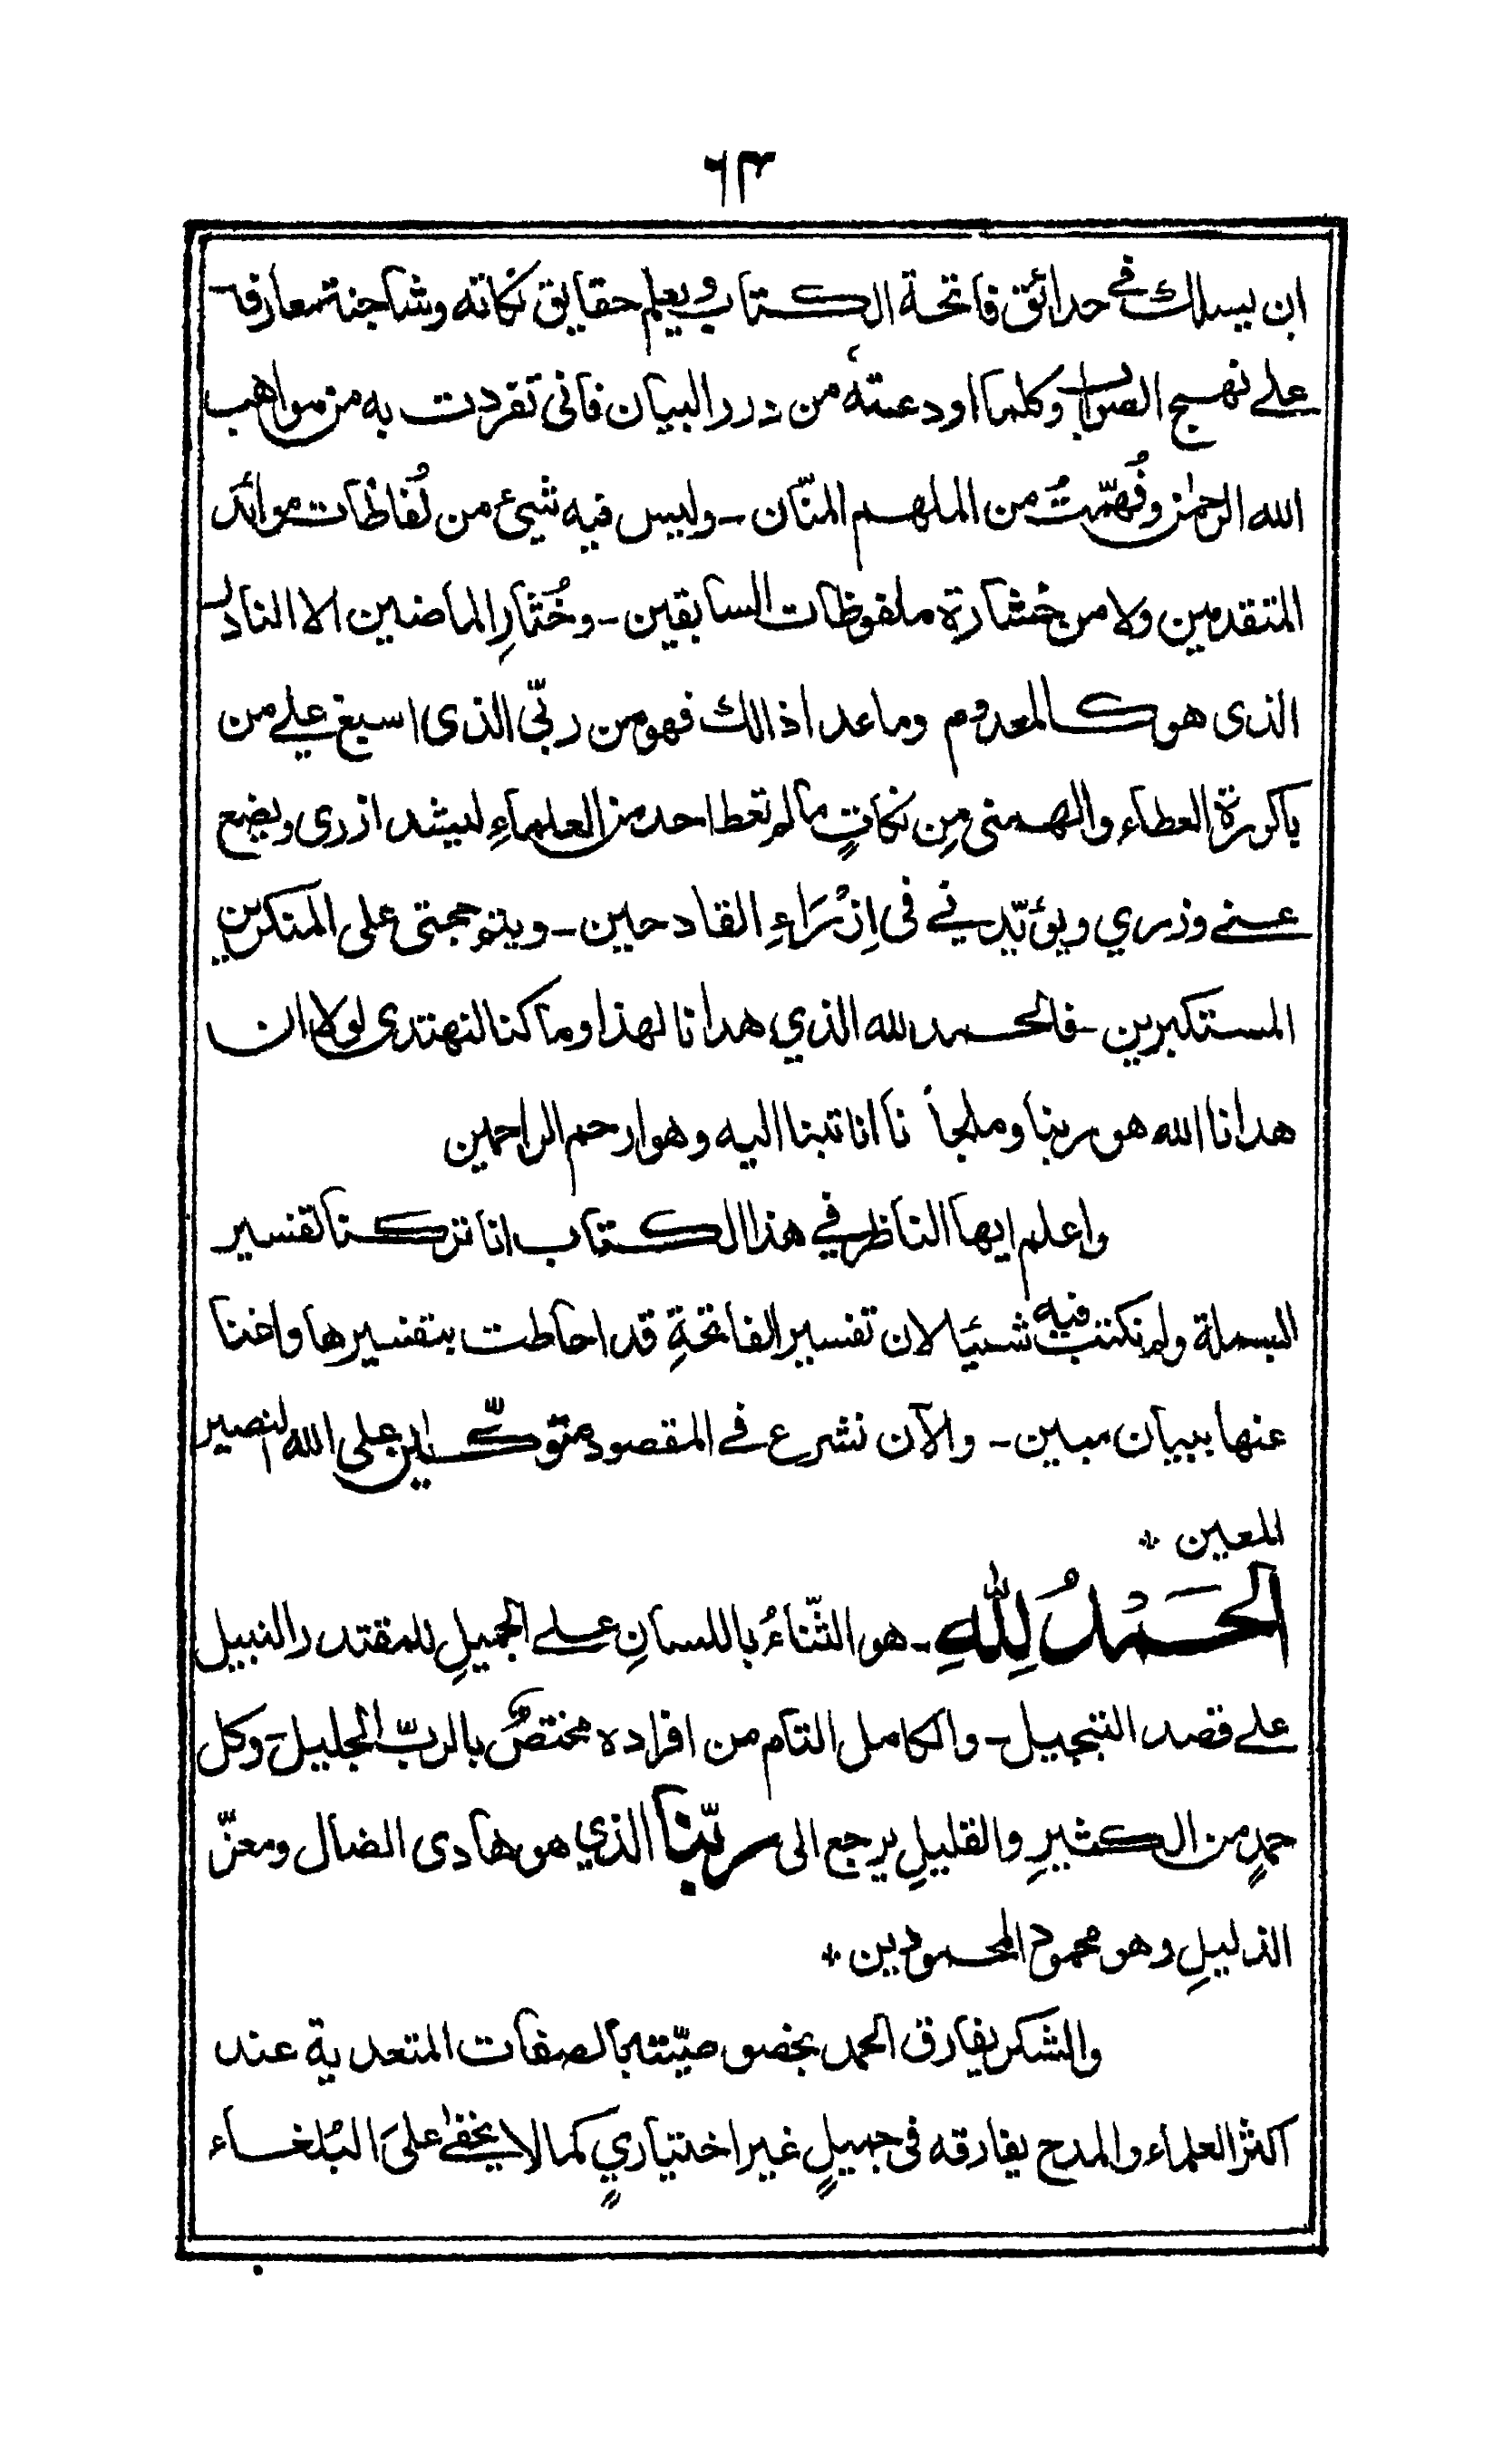 ٦٣
ان يسلك في حدائق فاتحة الكتاب ويعلم حقايق نكاته وشاجنة معارفه
على نهج الصواب وكلما اودعته من درر البيان فانى تفردت به من مواهب
الله الرحمٰن وفُهّمتُ من الملهم المنّان - وليس فيه شيئ من لُفاظات موائد
المتقدمين ولا من خشارة ملفوظات السابقين - وخُثارِ الماضين الا النادر
الذى هو كالمعدوم وما عدا ذالك فهو من ربّى الذى اسبغ علي من
باكورة العطاء والهمنى مِن نكاتٍ ما لم تعط احد من العلماءِ ليشد ازرى ويضع
عنے وزري ويؤيّدني في اِزْرَاءِ القادحين - ويتم حجتى على المنكرين
المستكبرين - فالحمد لله الذي هدانا لهذا وما كنا لنهتدى لولا ان
هدانا الله هو ربنا وملجأ نا انا تبنا اليه وهو ارحم الراحمين
واعلم ايها الناظر في هذا الكتاب انا تركنا تفسير
البسملة ولم نكتب فيه شيئا لان تفسير الفاتحةِ قد احاطت بتفسيرها واغنا
عنها ببيان مبين - والآن نشرع في المقصود متوكّلين على الله النصير
المعين ٭
الحَمْدُ لِلّٰهِ - هو الثّناءُ باللسانِ على الجميلِ للمقتدر النبيل
على قصد التبجيل - والكامل التام من افراده مختصٌّ بالربّ الجليل - وكل
حمدٍ من الكثيرِ والقليلِ يرجع الى ربّنا الذي هو هادى الضال ومعزّ
الذليلِ وهو محمود المحمودين ٭
والشكر يفارق الحمد بخصوصيّته بالصفات المتعدية عند
اكثر العلماء والمدح يفارقه فى جميلٍ غير اختياريٍ كما لا يخفىٰ علىَ البُلغاء